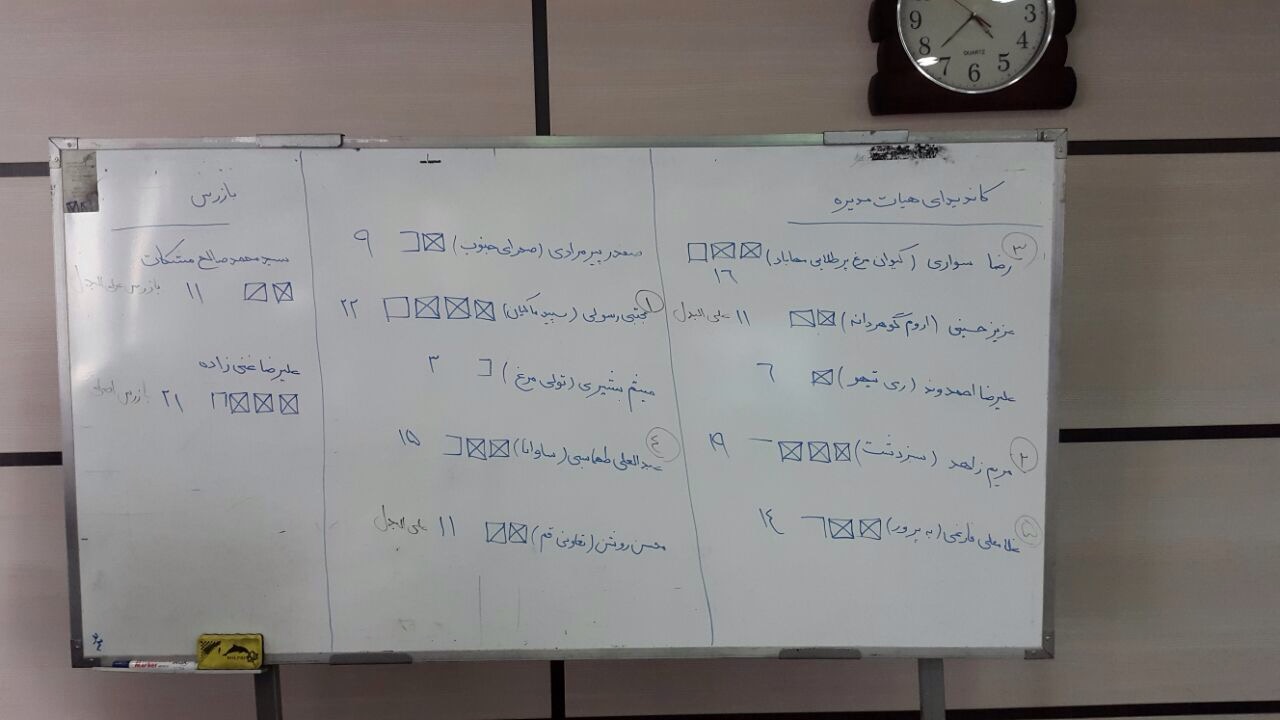 کاندیدای هیات مدیره
۳ رضا سواری (کیوان مرغ پرطلایی مهاباد) ۱۶
عزیز حسینی (اروم گوهردانه) ۱۱ علی البدل
علیرضا احمدوند (ری تیهو) ۶
۲ مریم زاهد (سبزدشت) ۱۹
۵ غلامعلی فارغی (به پرور) ۱۴
صفدر پیرمرادی (صحرای جنوب) ۹
۱ مجتبی رسولی (سپید ماکیان) ۲۲
میثم بشیری (تولی مرغ) ۳
۴ عبدالعلی طهماسبی (ساوانا) ۱۵
محسن روشن (تعاونی قم) ۱۱ علی البدل
بازرس
سید محمد صالح مشکات
۱۱ بازرس علی البدل
علیرضا غنی زاده
۲۱ بازرس اصلی
9
8
7
6
5
4
3
QUARTZ
Marker